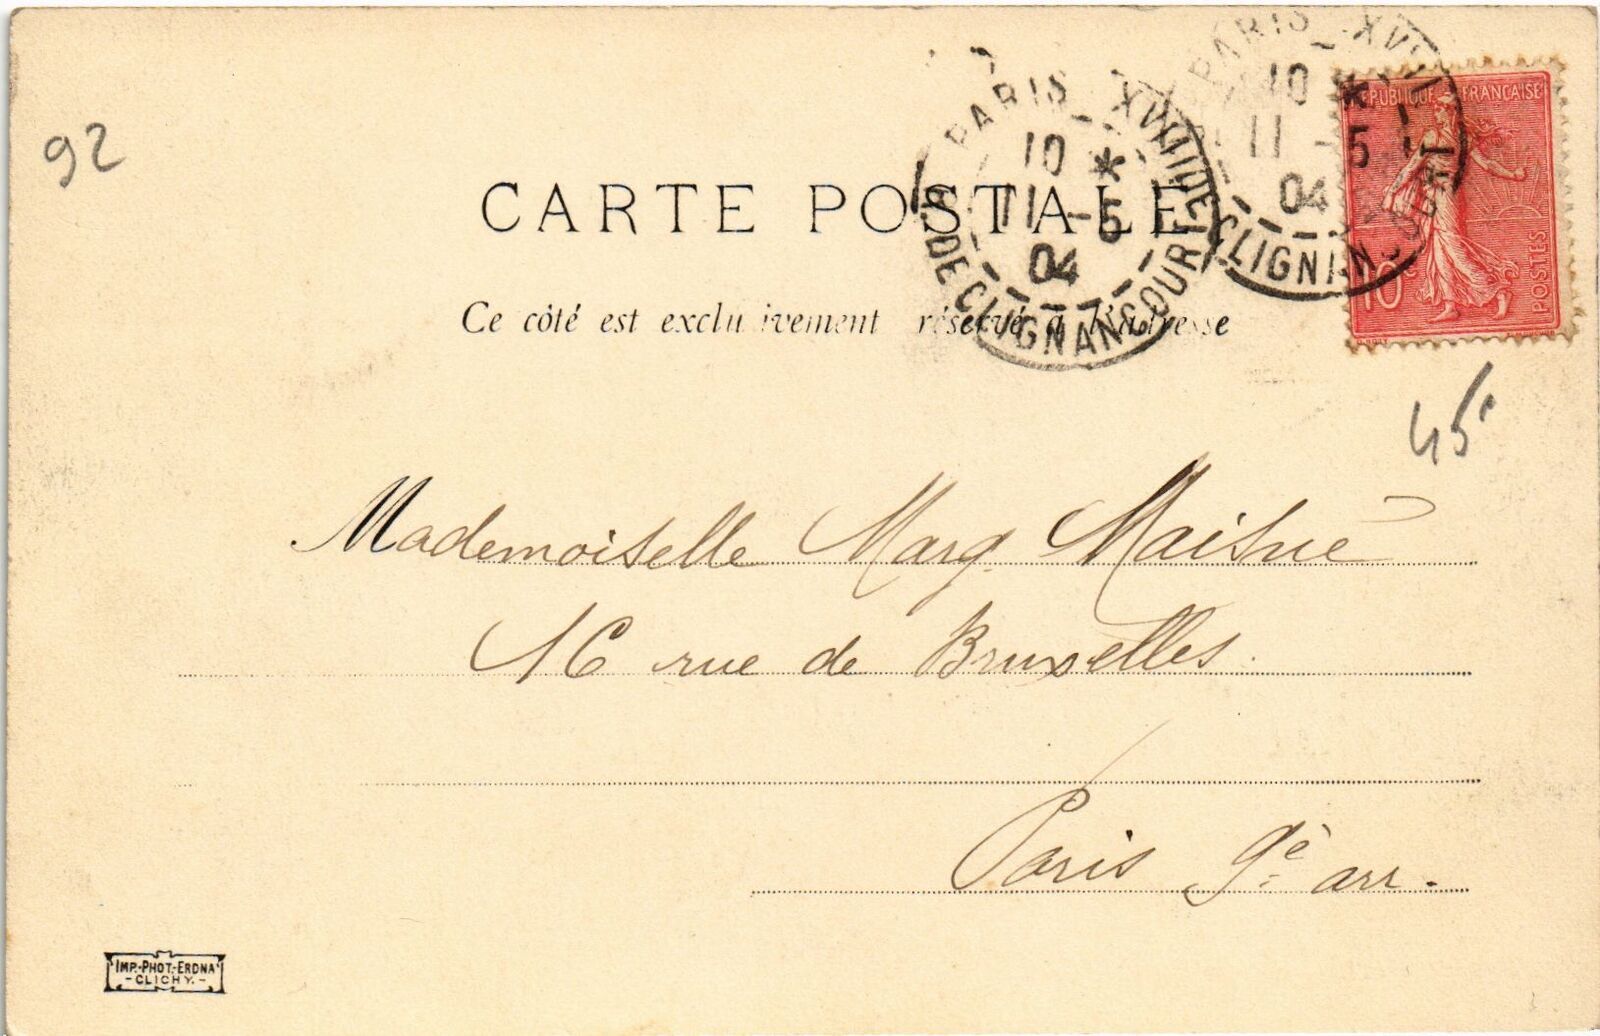 92
CARTE POSTALE
Ce côté est exclusivement réservé à l'adresse
PARIS XVIII DE CLIGNANCOURT
10 *
11 - 5
04
PARIS XVIII DE CLIGNANCOURT
10 *
11 - 5
04
REPUBLIQUE FRANÇAISE
10c
POSTES
45
Mademoiselle Marg.
16 rue de Bruxelles.
Paris 9e arr.
IMP.-PHOT.-ERDNA
-CLICHY.-